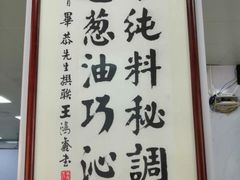 純料秘調
葱油巧沁
畢恭先生撰聯 王鴻書